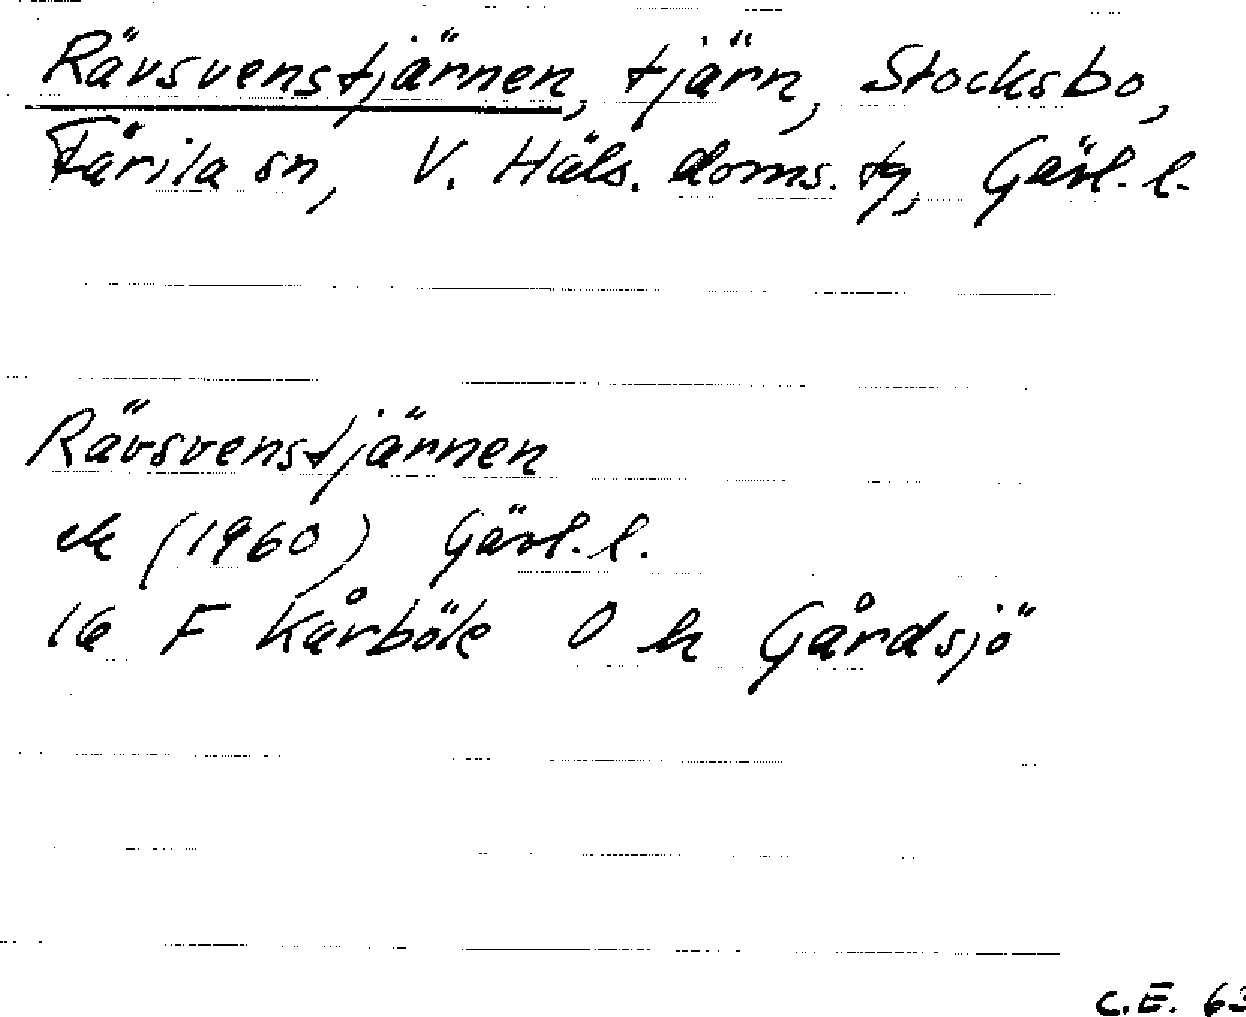 Rävsvenstjärnen, tjärn, Stocksbo,
Färila sn, V. Häls. doms. tg, Gävl. l.
Rävsvenstjärnen
ek (1960) Gävl. l.
16 F Kårböle O h Gårdsjö
C.E. 63